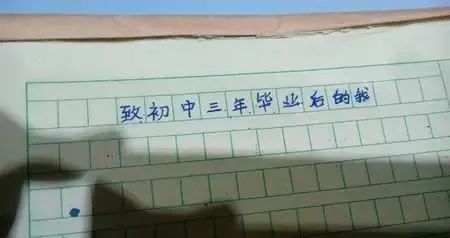 致初中三年毕业后的我